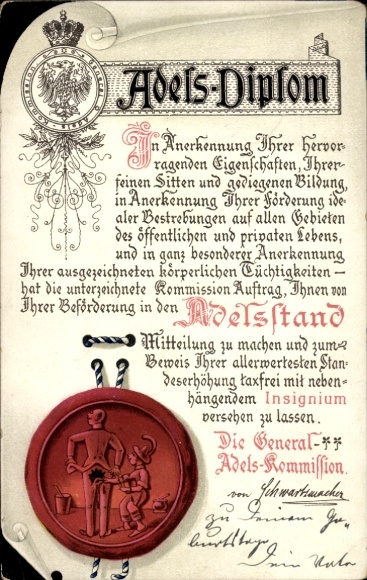 Adels-Diplom
In Anerkennung Ihrer hervor-
ragenden Eigenschaften, Ihrer
feinen Sitten und gediegenen Bildung,
in Anerkennung Ihrer Förderung ide-
aler Bestrebungen auf allen Gebieten
des öffentlichen und privaten Lebens,
und in ganz besonderer Anerkennung
Ihrer ausgezeichneten körperlichen Tüchtigkeiten –
hat die unterzeichnete Kommission Auftrag, Ihnen von
Ihrer Beförderung in den Adelsstand
Mitteilung zu machen und zum
Beweis Ihrer allerwertesten Stan-
deserhöhung taxfrei mit neben-
hängendem Insignium
versehen zu lassen.
Die General-
Adels-Kommission.
von Schwartzmacher
zu Deinem Ge-
burtstage
Dein Vater